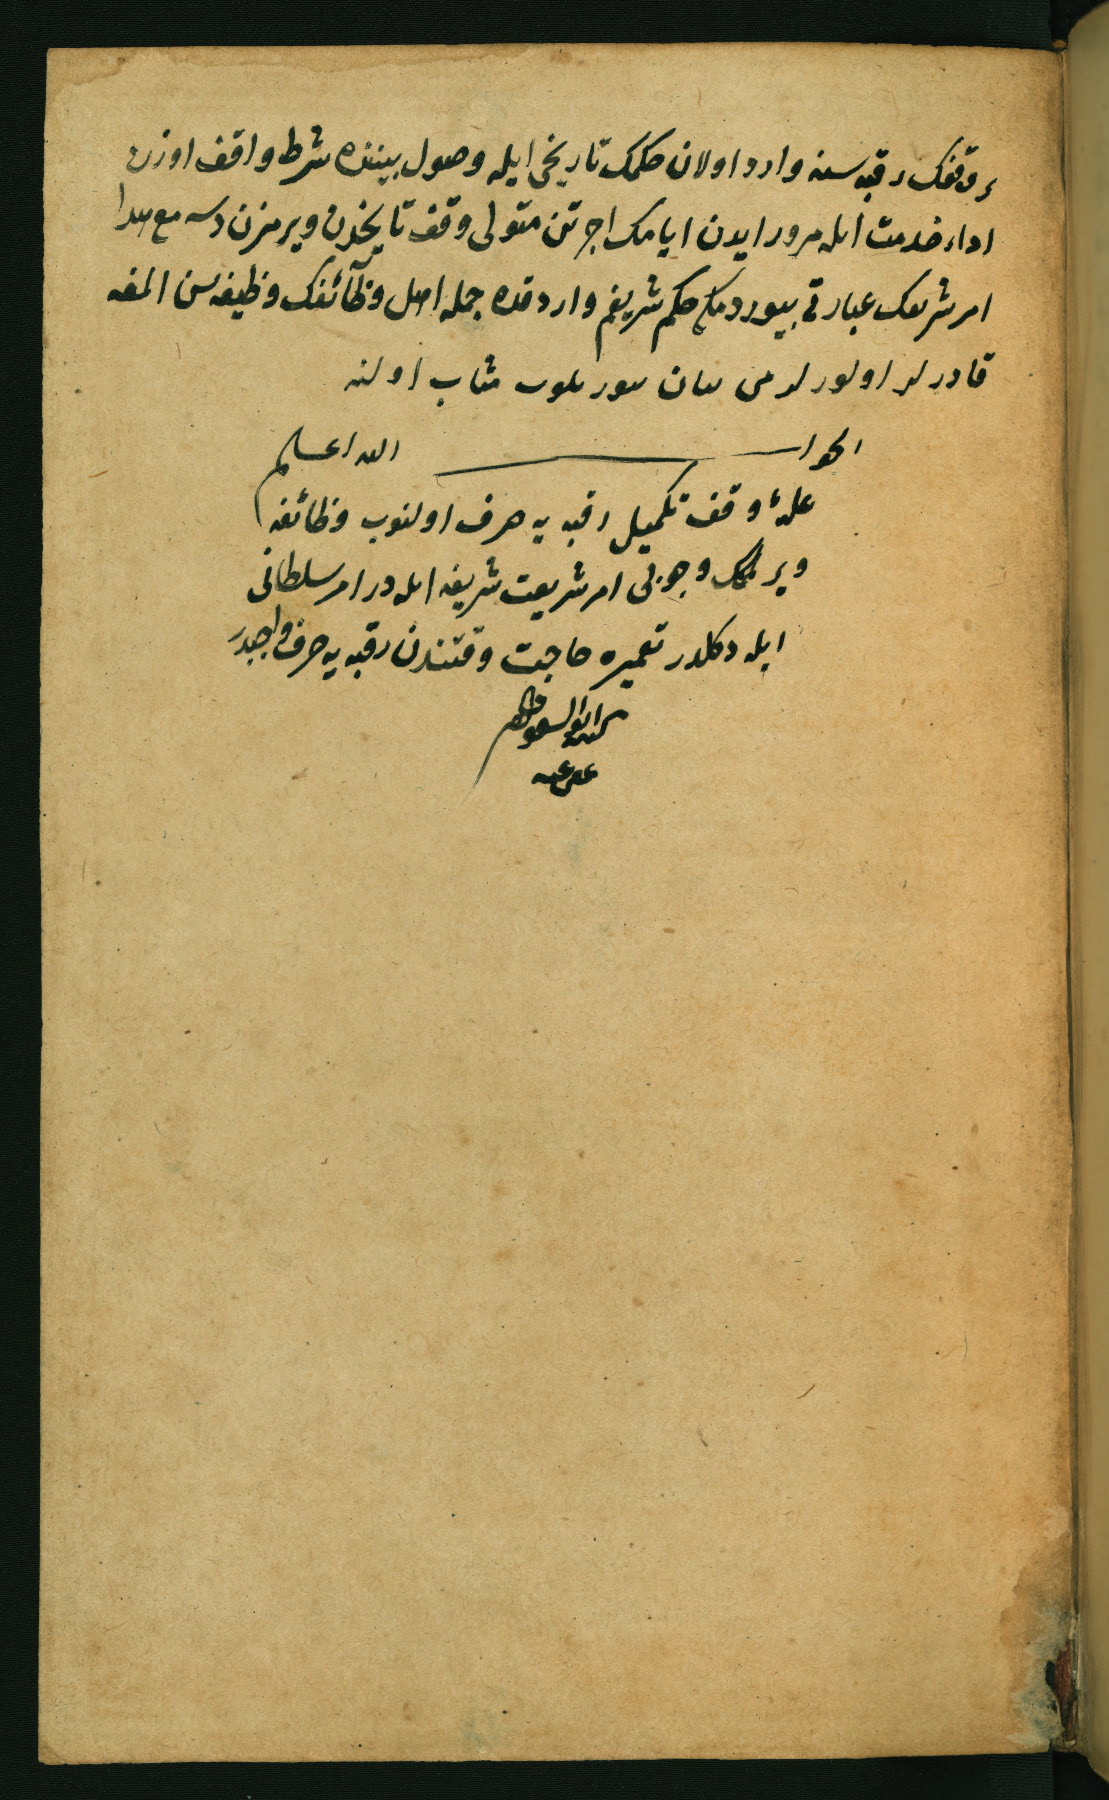 وقفك رقبه سنه وارد اولان حكمك تاريخى ايله وصول بيننده شرط واقف اوزره
اداء خدمت ايله مرور ايدن ايامك اجرتن متولى وقف تاريخدن ويرمزن دسه مع هذا
امر شريفك عبارتى بيوردمكه حكم شريفم واردقده جمله اهل وظآئفك وظيفه سن المغه
قادرلر اولورلرمى بيان بيوريلوب مثاب اولنه
الجواب الله اعلم
غلهٔ وقف تكميل رقبه يه صرف اولنوب وظائفه
ويرلمك وجوبى امر شريعت شريفه ايله در امر سلطانى
ايله دكلدر تعميره حاجت وقتندن رقبه يه صرف واجبدر
كتبه ابو السعود
عفى عنه